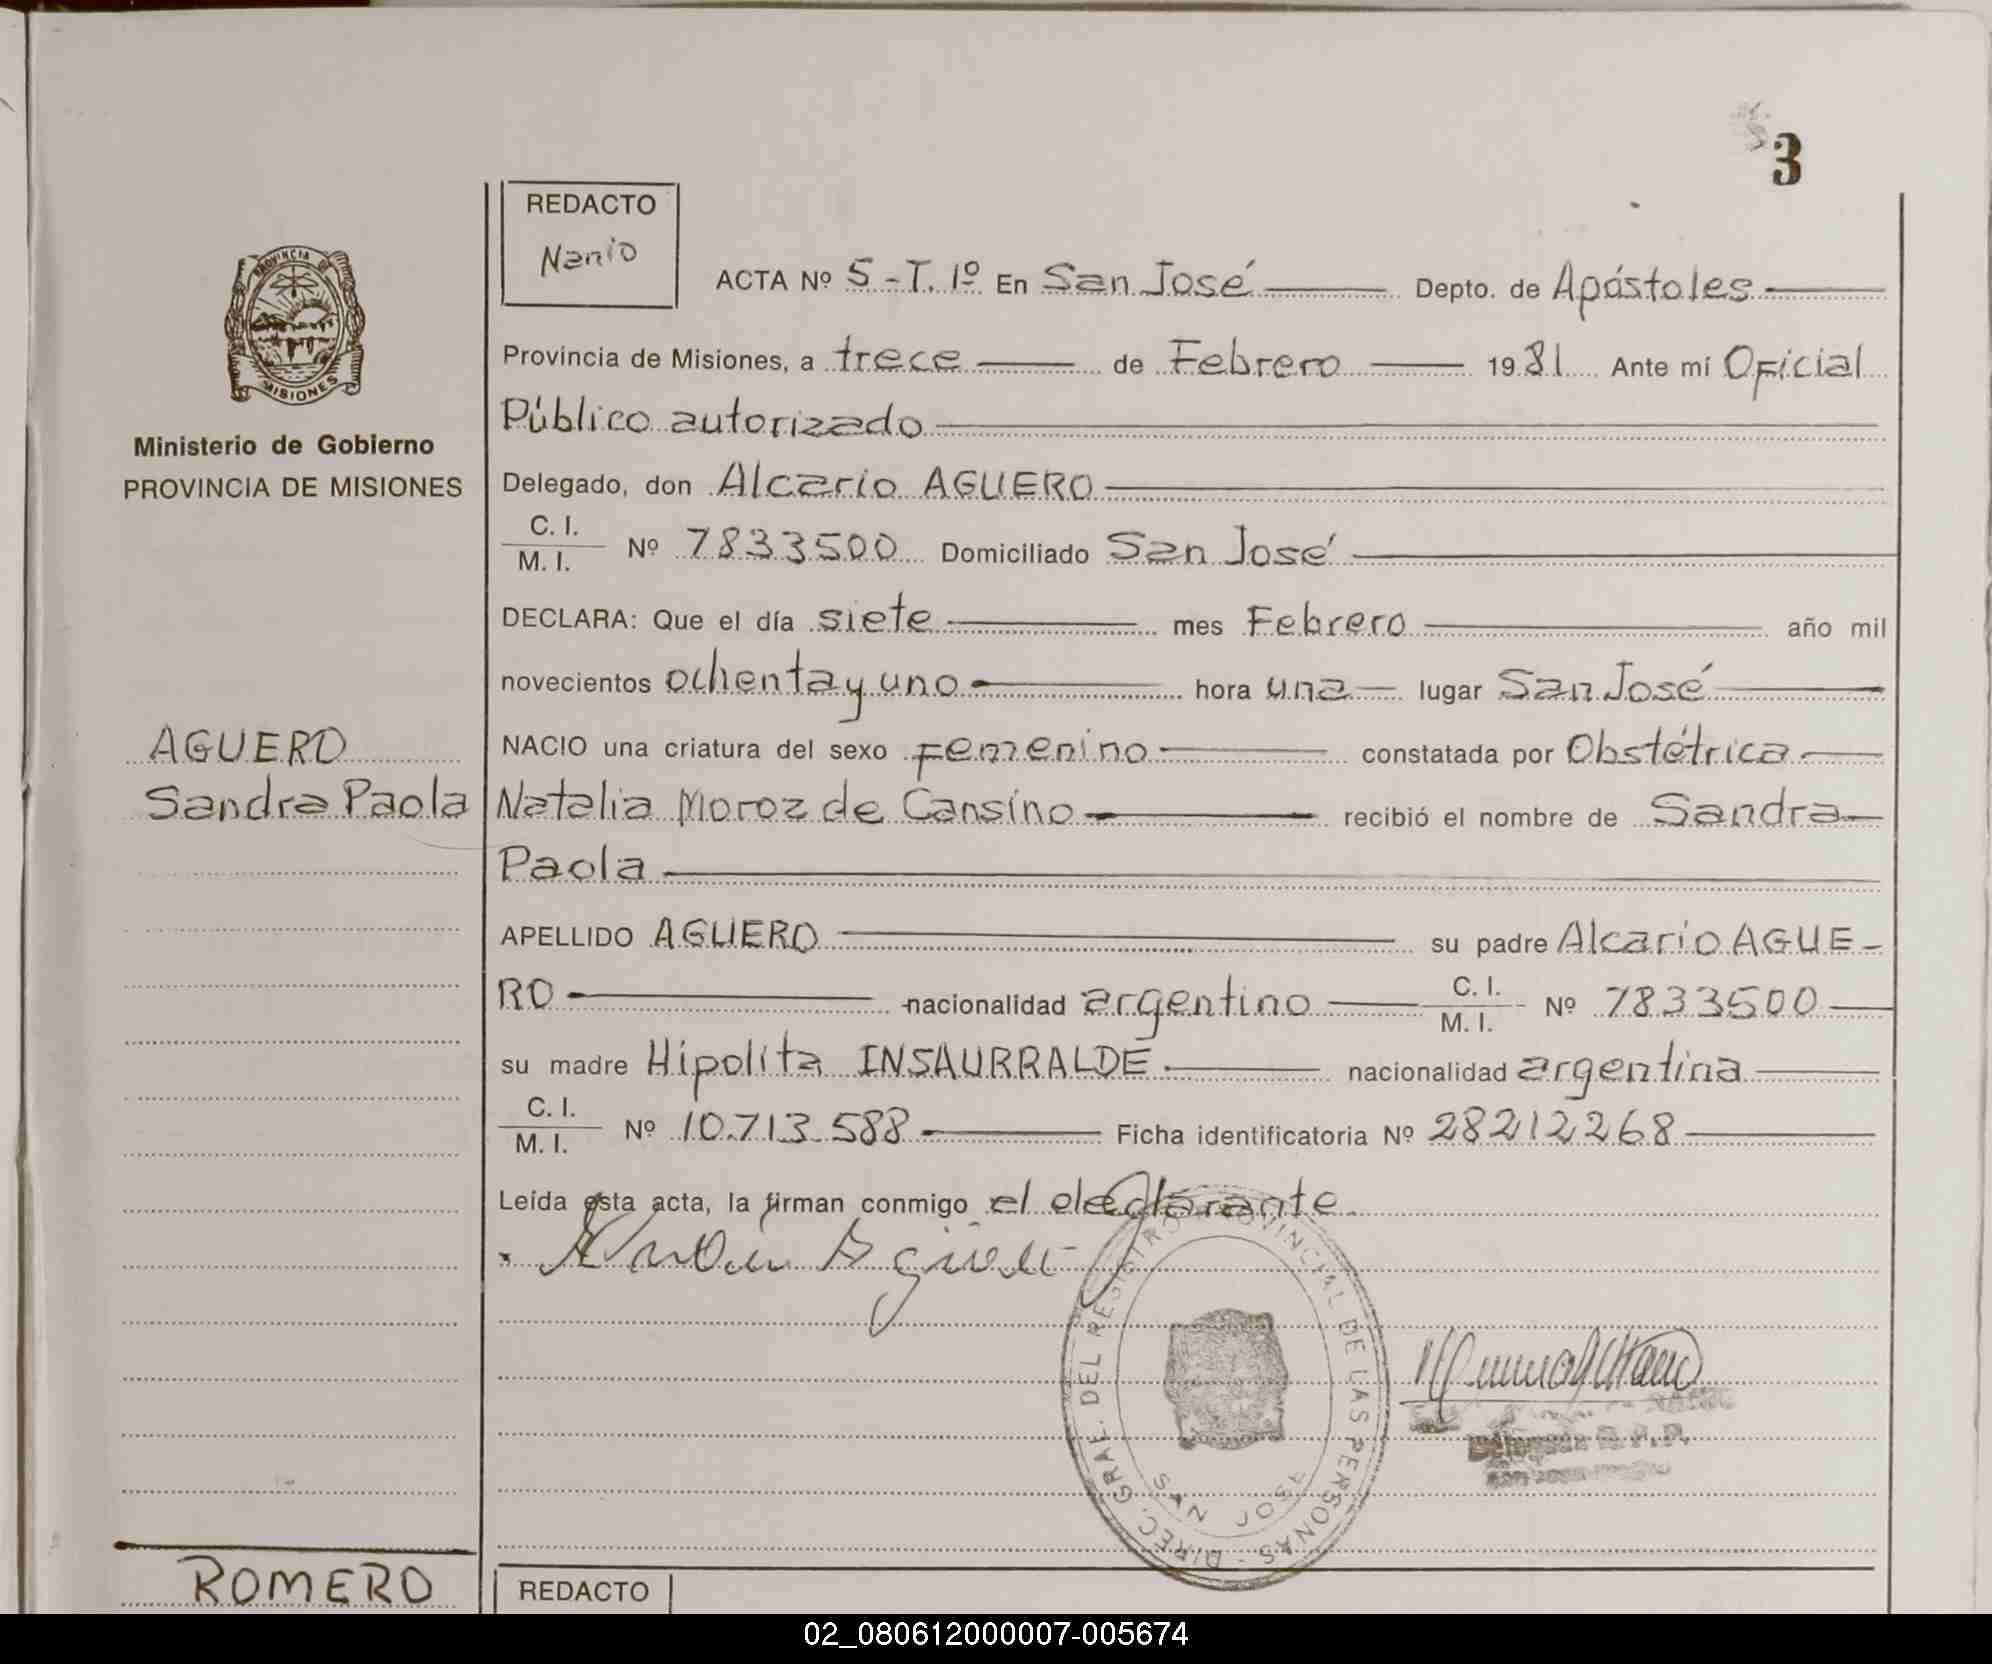 3
REDACTO
Nanio
ACTA Nº 5-T.1º En San José Depto. de Apóstoles
PROVINCIA DE
MISIONES
Provincia de Misiones, a trece de Febrero 1981 Ante mí Oficial
Público autorizado
Ministerio de Gobierno
PROVINCIA DE MISIONES
Delegado, don Alcario AGUERO
C. I.
M. I. Nº 7833500 Domiciliado San José
DECLARA: Que el día siete mes Febrero año mil
novecientos ochenta y uno hora una lugar San José
AGUERO
Sandra Paola
NACIO una criatura del sexo Femenino constatada por Obstétrica
Natalia Moroz de Cansino recibió el nombre de Sandra
Paola
APELLIDO AGUERO su padre Alcario AGUE-
RO nacionalidad argentino C. I.
M. I. Nº 7833500
su madre Hipolita INSAURRALDE nacionalidad argentina
C. I.
M. I. Nº 10.713.588 Ficha identificatoria Nº 28212268
Leída esta acta, la firman conmigo el declarante
DIREC. GRAL. DEL REGISTRO PROVINCIAL DE LAS PERSONAS
SAN JOSE
ROMERO
REDACTO
02_080612000007-005674